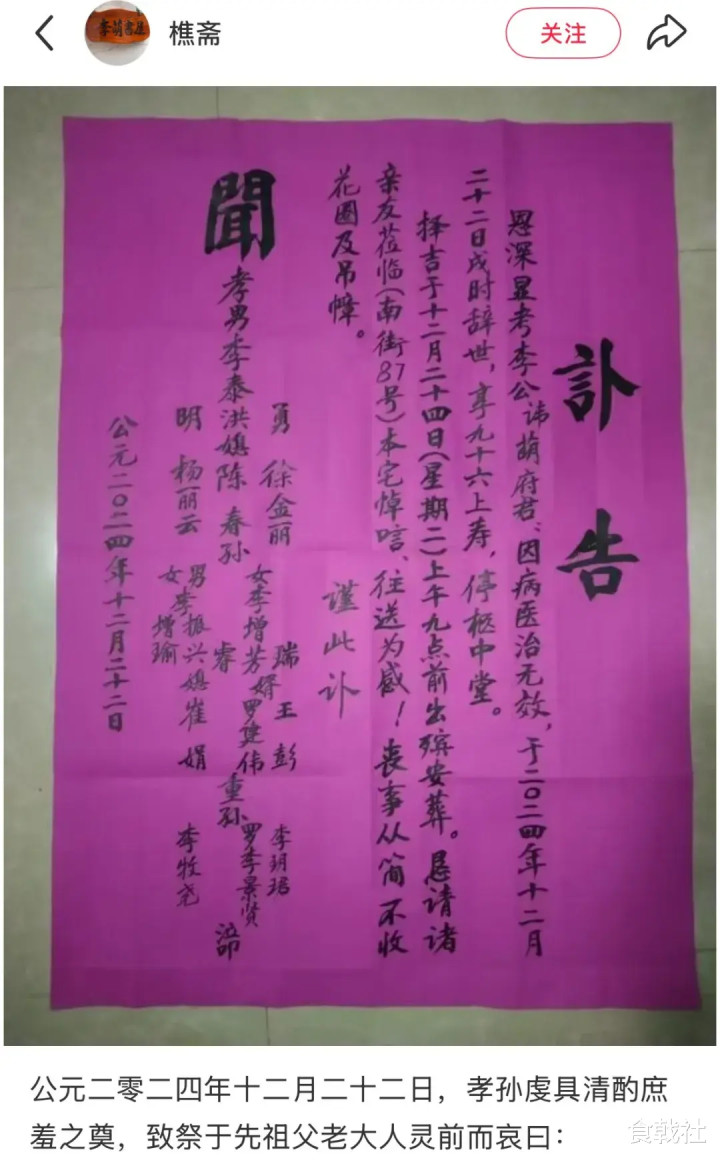 樵斋
关注
訃告
恩深显考李公讳萌府君、因病医治无效,于二〇二四年十二月
二十二日戌时辞世,享九十六上寿,停柩中堂。
择吉于十二月二十四日(星期二)上午九点前出殡安葬。恳请诸
亲友莅临(南街87号)本宅悼唁、往送为感!丧事从简不收
花圈及吊幛。
谨此讣
聞
勇 徐金丽 瑞 王彭 李玥珺
孝男李泰洪媳陈春孙 女李增芳婿罗建伟 睿 重孙 罗李景贤 泣叩
明 杨丽云 男李振兴媳崔娟 李牧尧
女 增瑜
公元二〇二四年十二月二十二日
公元二零二四年十二月二十二日，孝孙虔具清酌庶
羞之奠，致祭于先祖父老大人灵前而哀曰：
食戟社